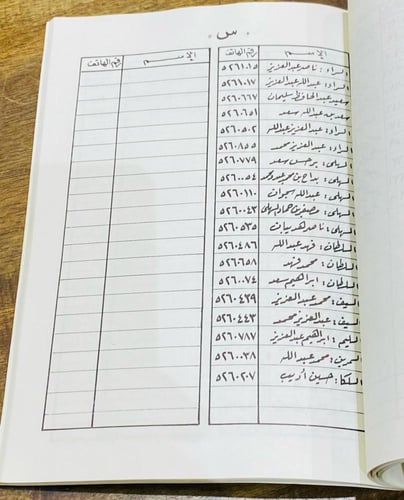 س
الاسم رقم الهاتف الاسم رقم الهاتف
السراء : ناصر عبدالعزيز ٥٢٦١٠١٥
السراء : عبدالله عبدالعزيز ٥٢٦١٠١٧
سعيد عبدالحافظ سليمان ٥٢٦٠٦٦٧
سعد بن عبدالله سعد ٥٢٦٠٦٥١
السراء : عبدالعزيز عبدالله ٥٢٦٠٥٠٢
السراء : عبدالعزيز محمد ٥٢٦٠٨٥٥
السهلي : برجس سعد ٥٢٦٠٧٧٩
السهلي : بداح بن محمد ٥٢٦٠٠٥٤
السهلي : عبدالله سجوان ٥٢٦٠١١٠
السهلي : حماد السهلي ٥٢٦٠٠٤٣
السهلي : ناصر هديبان ٥٢٦٠٥٣٥
السلطان : فهد عبدالله ٥٢٦٠٤٨٦
السلطان : محمد فهد ٥٢٦٠٦٥٨
السلطان : ابراهيم سعد ٥٢٦٠٠٧٤
السيف : محمد عبدالعزيز ٥٢٦٠٤٣٩
السيف : عبدالعزيز محمد ٥٢٦٠٤٤٣
السليم : ابراهيم عبدالعزيز ٥٢٦٠٧٨٧
محمد عبدالله ٥٢٦٠٠٣٨
حسين أديب ٥٢٦٠٢٠٧